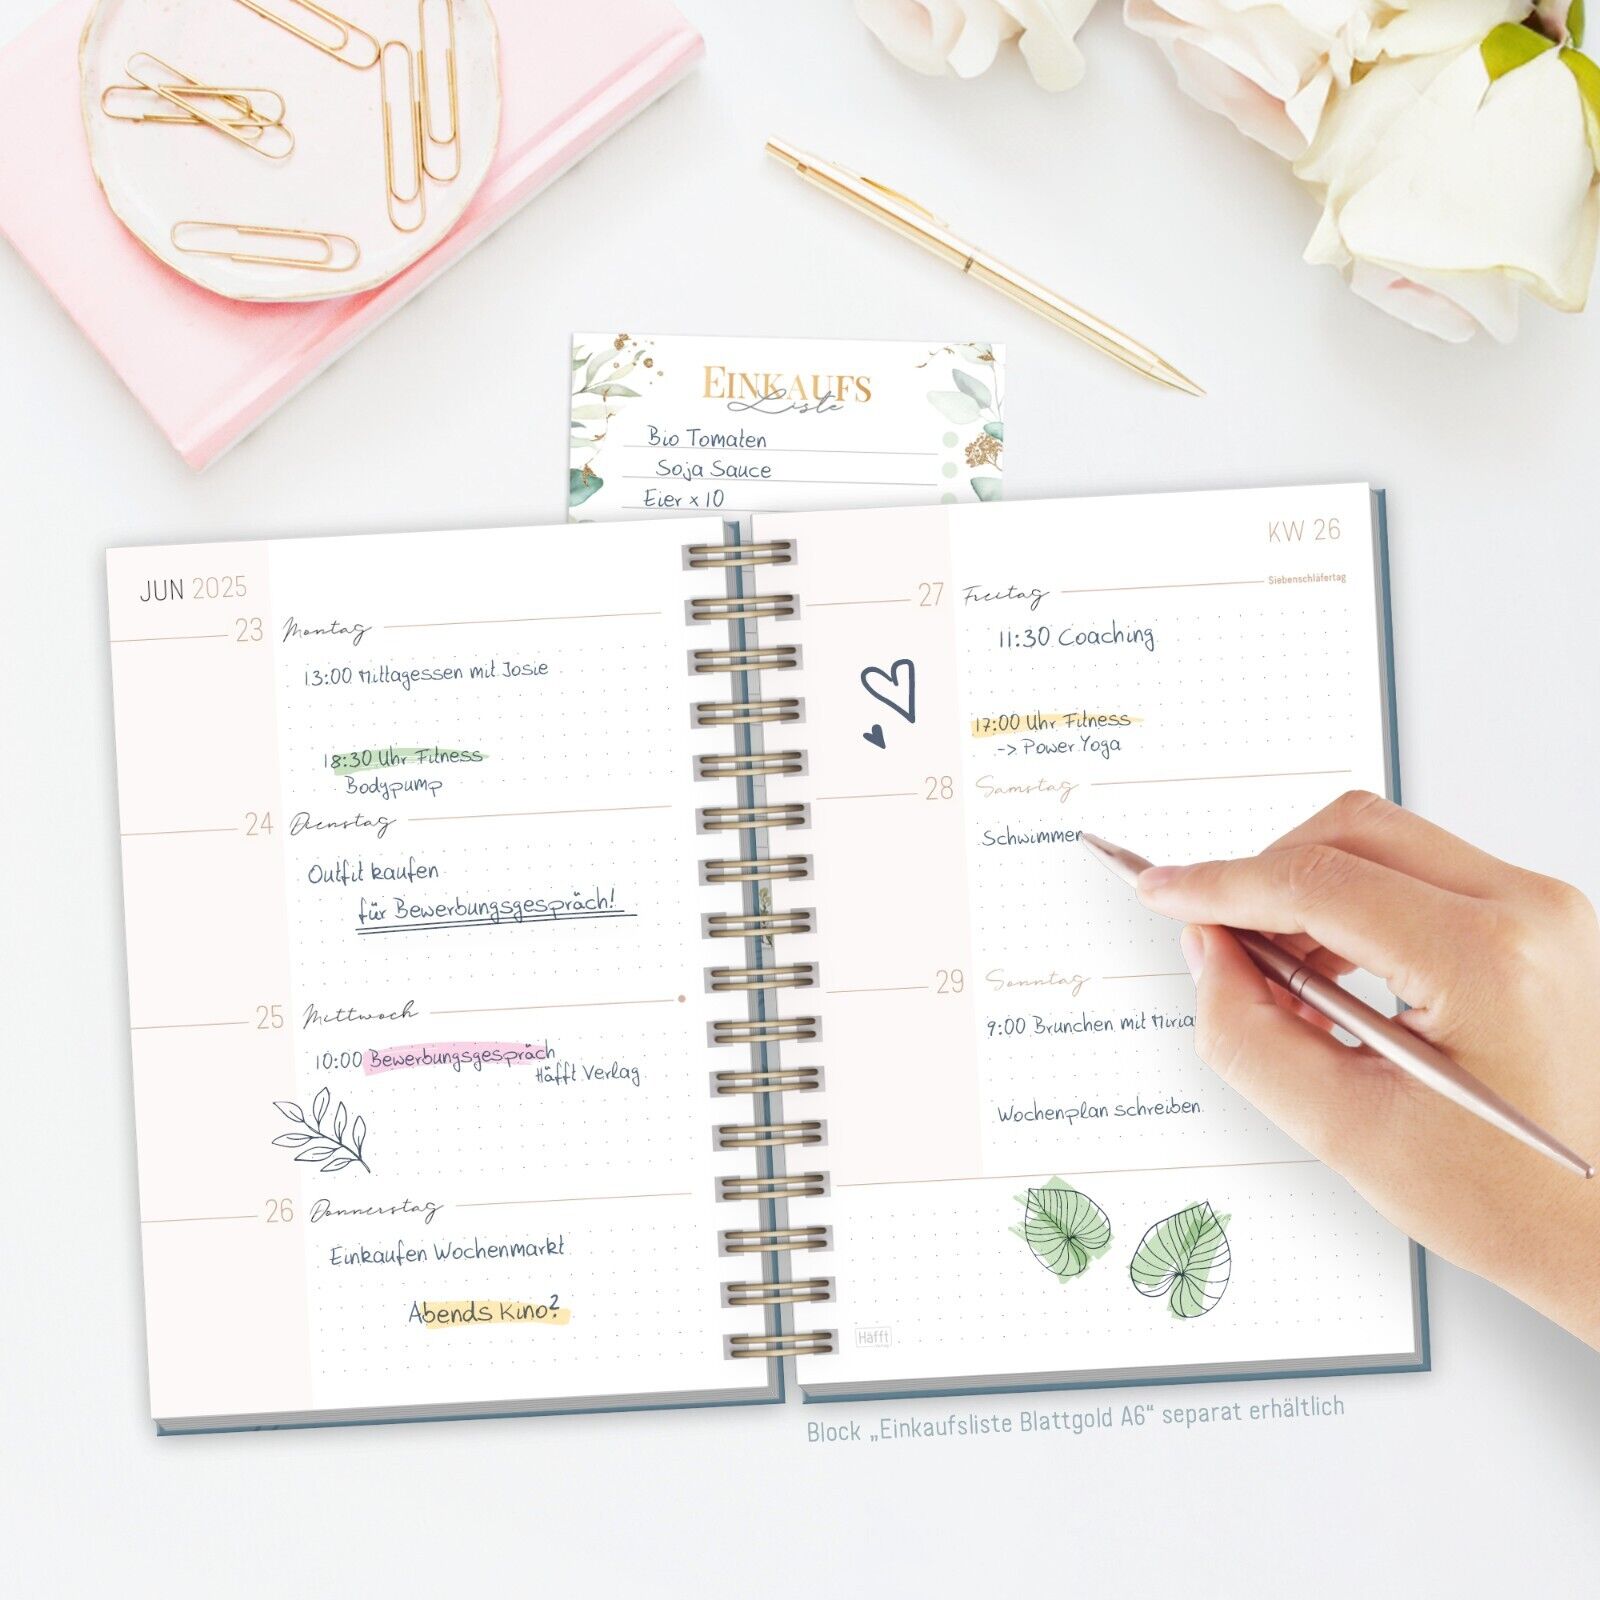 EINKAUFS
Liste
Bio Tomaten
Soja Sauce
Eier x 10
JUN 2025
23 Montag
13:00 Mittagessen mit Josie
18:30 Uhr Fitness
Bodypump
24 Dienstag
Outfit kaufen
für Bewerbungsgespräch!
25 Mittwoch
10:00 Bewerbungsgespräch
Häfft Verlag
26 Donnerstag
Einkaufen Wochenmarkt
Abends Kino?
KW 26
Siebenschläfertag
27 Freitag
11:30 Coaching
17:00 Uhr Fitness
-> Power Yoga
28 Samstag
Schwimmen
29 Sonntag
9:00 Brunchen mit
Wochenplan schreiben
Häfft
Block „Einkaufsliste Blattgold A6“ separat erhältlich